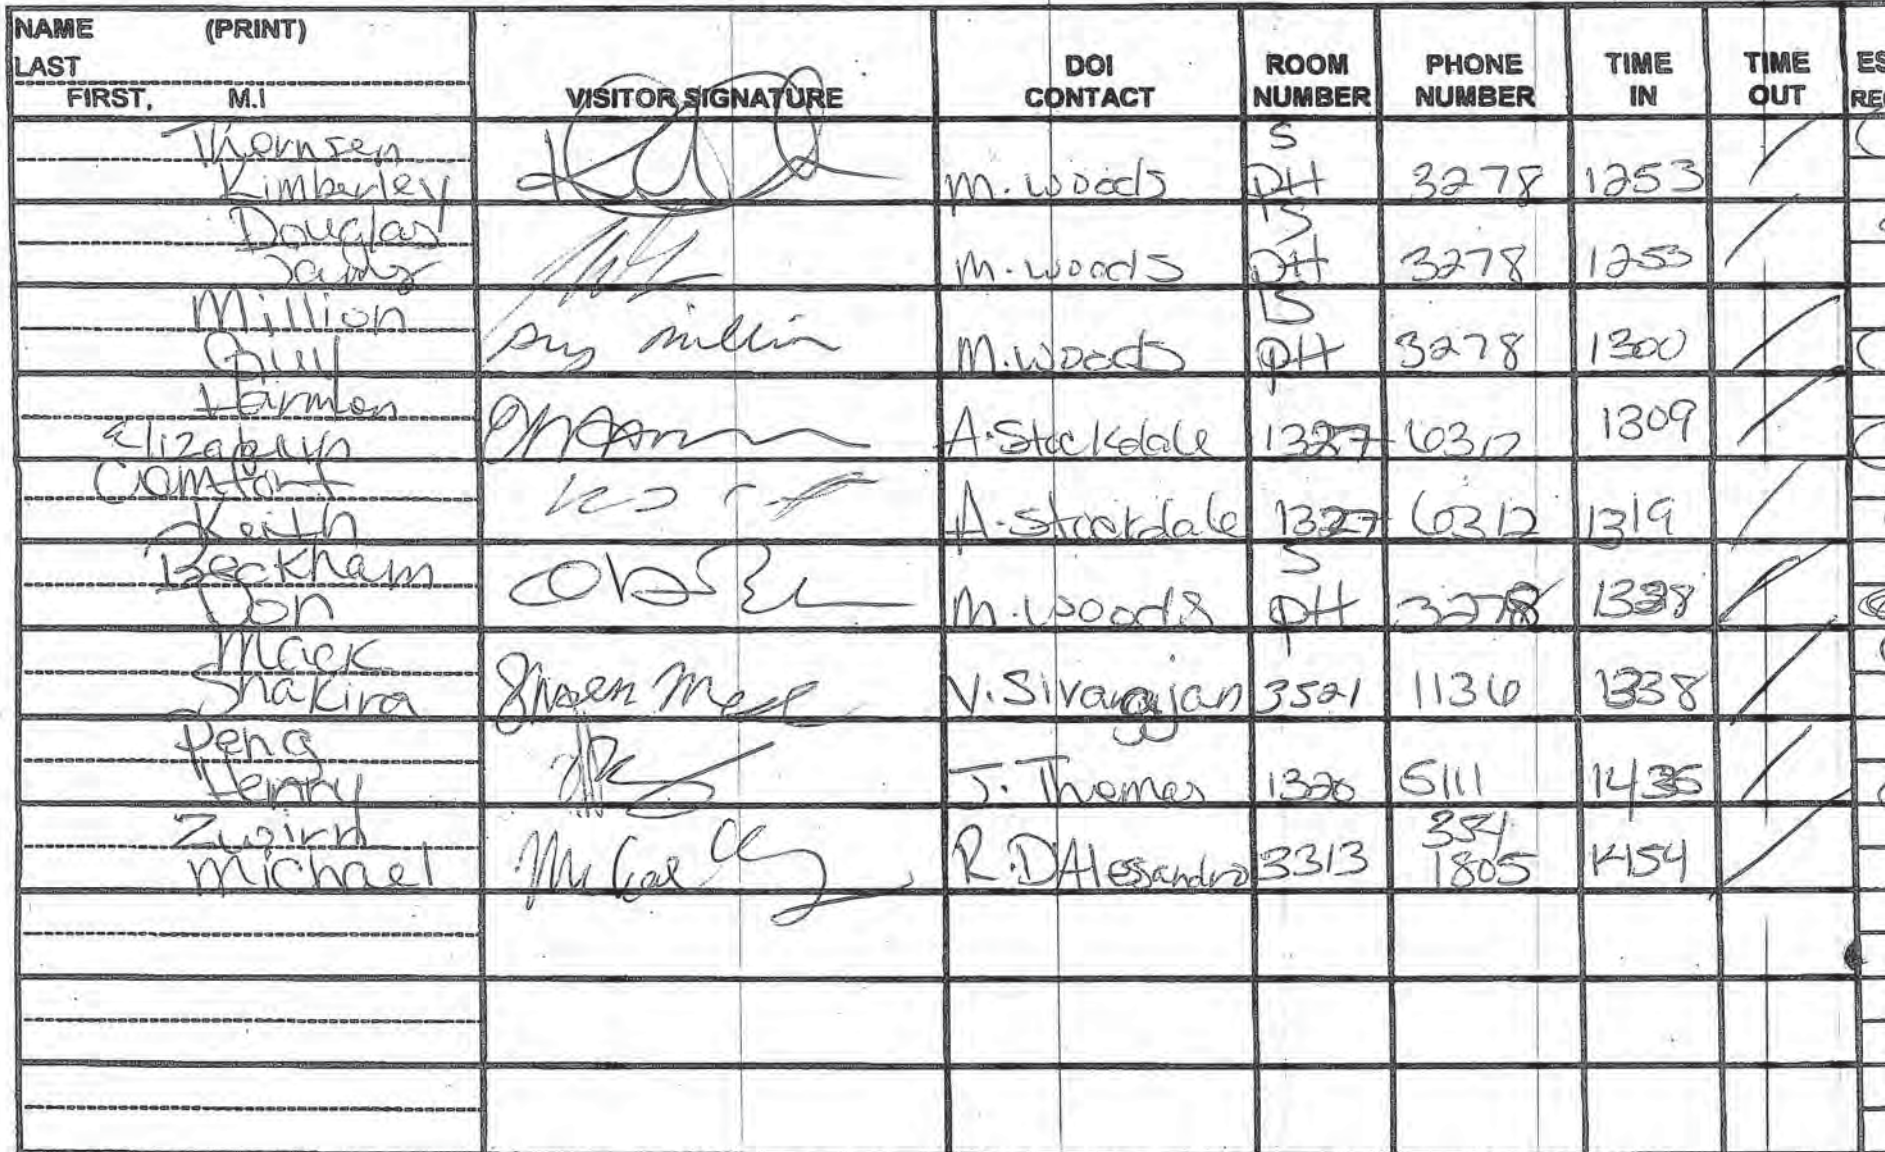 NAME (PRINT)
LAST
FIRST, M.I
VISITOR SIGNATURE
DOI
CONTACT
ROOM
NUMBER
PHONE
NUMBER
TIME
IN
TIME
OUT
Thomsen
Kimberley
M. Woods
S
PH
3278
1253
Douglas
M. Woods
S
PH
3278
1253
Million
Guy
Guy Million
M. Woods
S
PH
3278
1300
Harmon
Elizabeth
A. Stockdale
1327
6312
1309
Keith
A. Stockdale
1327
6312
1319
Beckham
Don
M. Woods
S
PH
3278
1338
Mack
Shakira
V. Sivarajan
3521
1136
1338
Peng
Henry
J. Thomas
1320
5111
1435
Zwirn
Michael
R. DAlessandro
3313
354
1805
1454